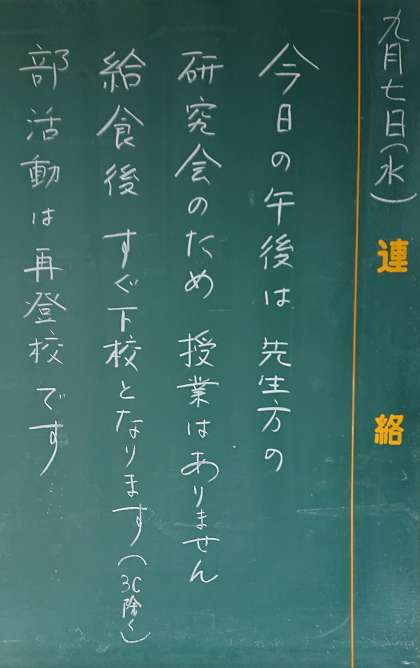 九月七日(水)
連絡
今日の午後は 先生方の
研究会のため 授業はありません
給食後 すぐ下校となります(3C除く)
部活動は再登校です